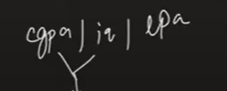 cgpa | iq | lpa